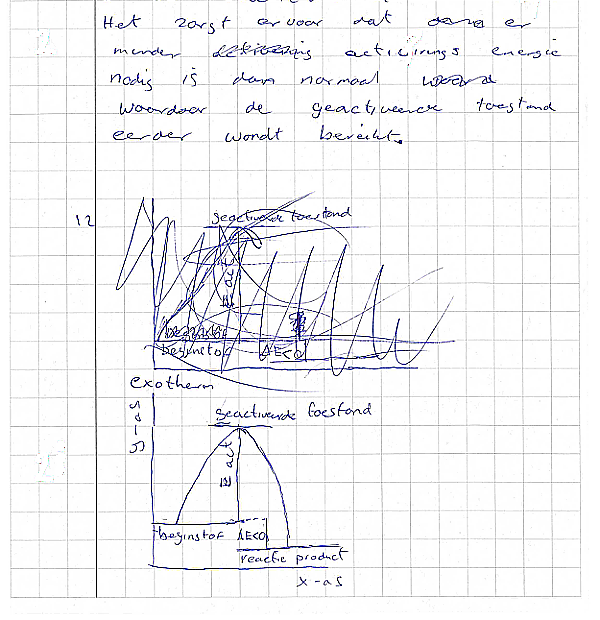 Het zorgt ervoor dat er
minder activirings energie
nodig is dan normaal
waardoor de geactiveerde toestand
eerder wordt bereikt.
12
geactiveerde toestand
E act
beginstof
ΔE<0
exotherm
y-as
geactiveerde toestand
E act
beginstof ΔE<0
reactie product
x-as